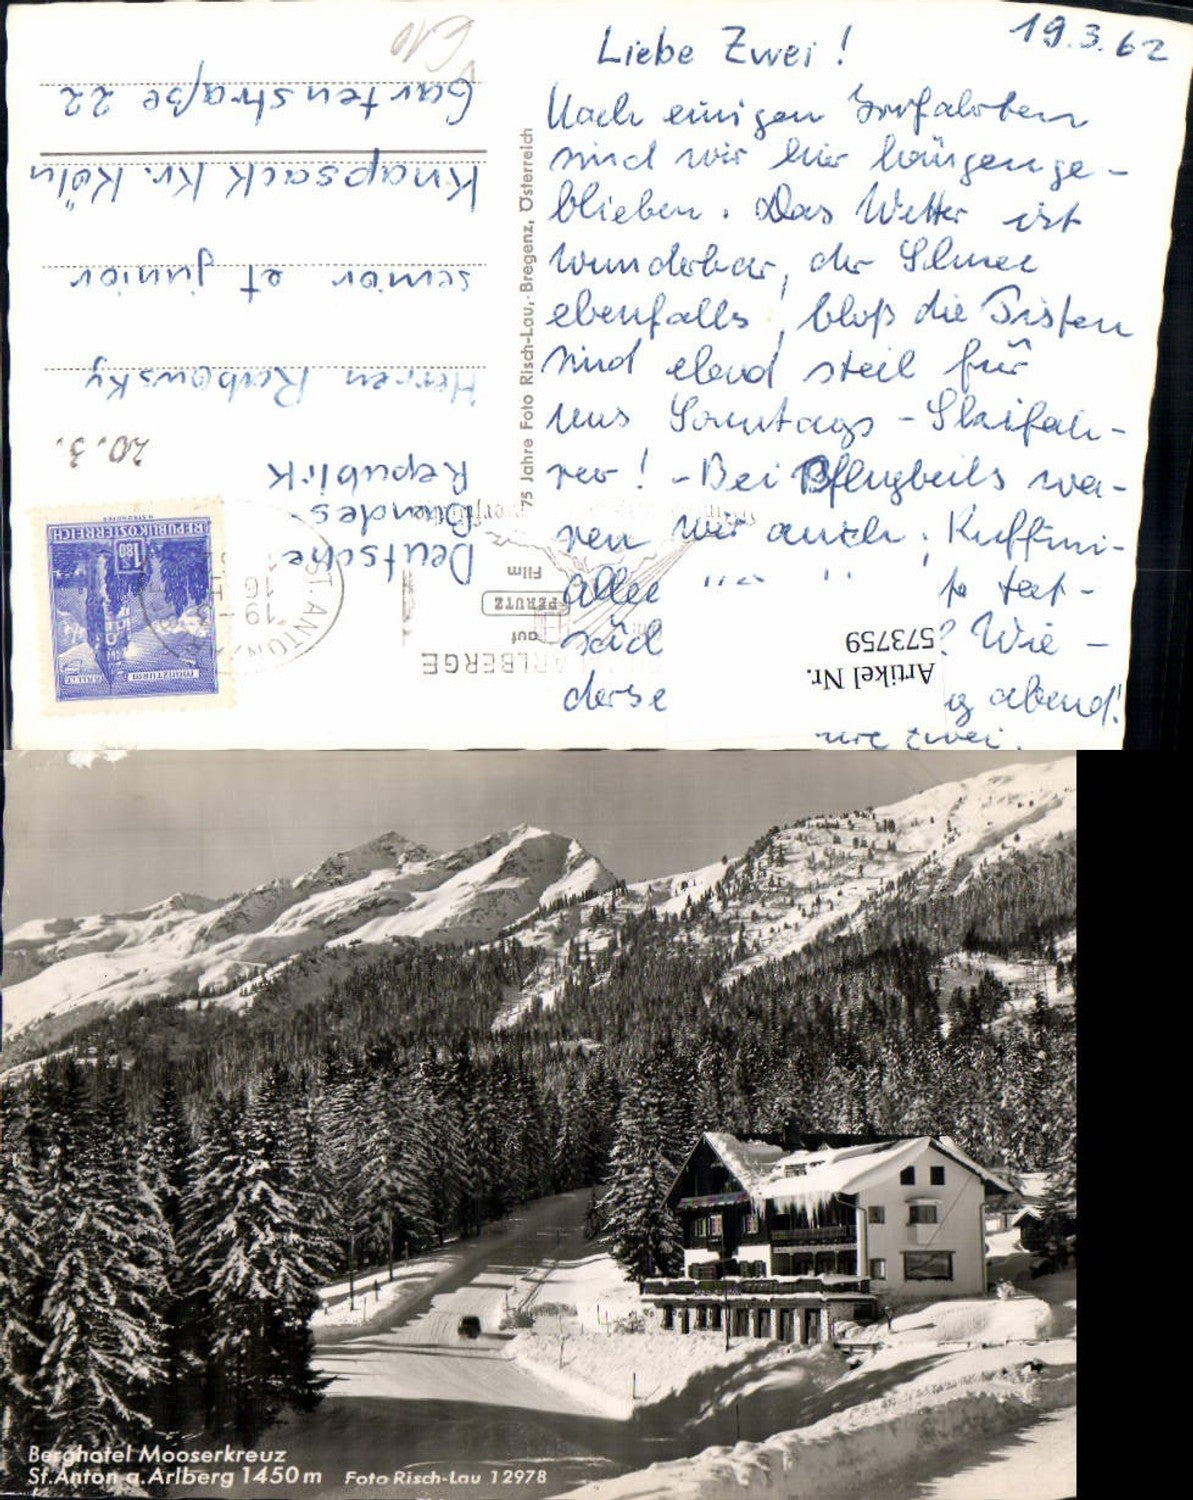 19.3.62
Liebe Zwei!
Nach einigen Irrfahrten
sind wir hier hängenge-
blieben. Das Wetter ist
wunderbar, der Schnee
ebenfalls, bloß die Pisten
sind elend steil für
uns Sonntags-Skifah-
rer! - Bei Pflugbeils wa-
ren wir auch,
alle
Wie-
abend!
zwei.
75 Jahre Foto Risch-Lau, Bregenz, Österreich
Deutsche
Bundes-
Republik
20.3.
Herren Rabowsky
senior et junior
Knapsack Kr. Köln
Gartenstraße 22
REPUBLIK ÖSTERREICH
1.80
MÜNZTURM
ST. ANTON
19.-3.
16
ARLBERGE
auf
PERUTZ
Film
Artikel Nr.
573759
Berghotel Mooserkreuz
St. Anton a. Arlberg 1450 m Foto Risch-Lau 12978